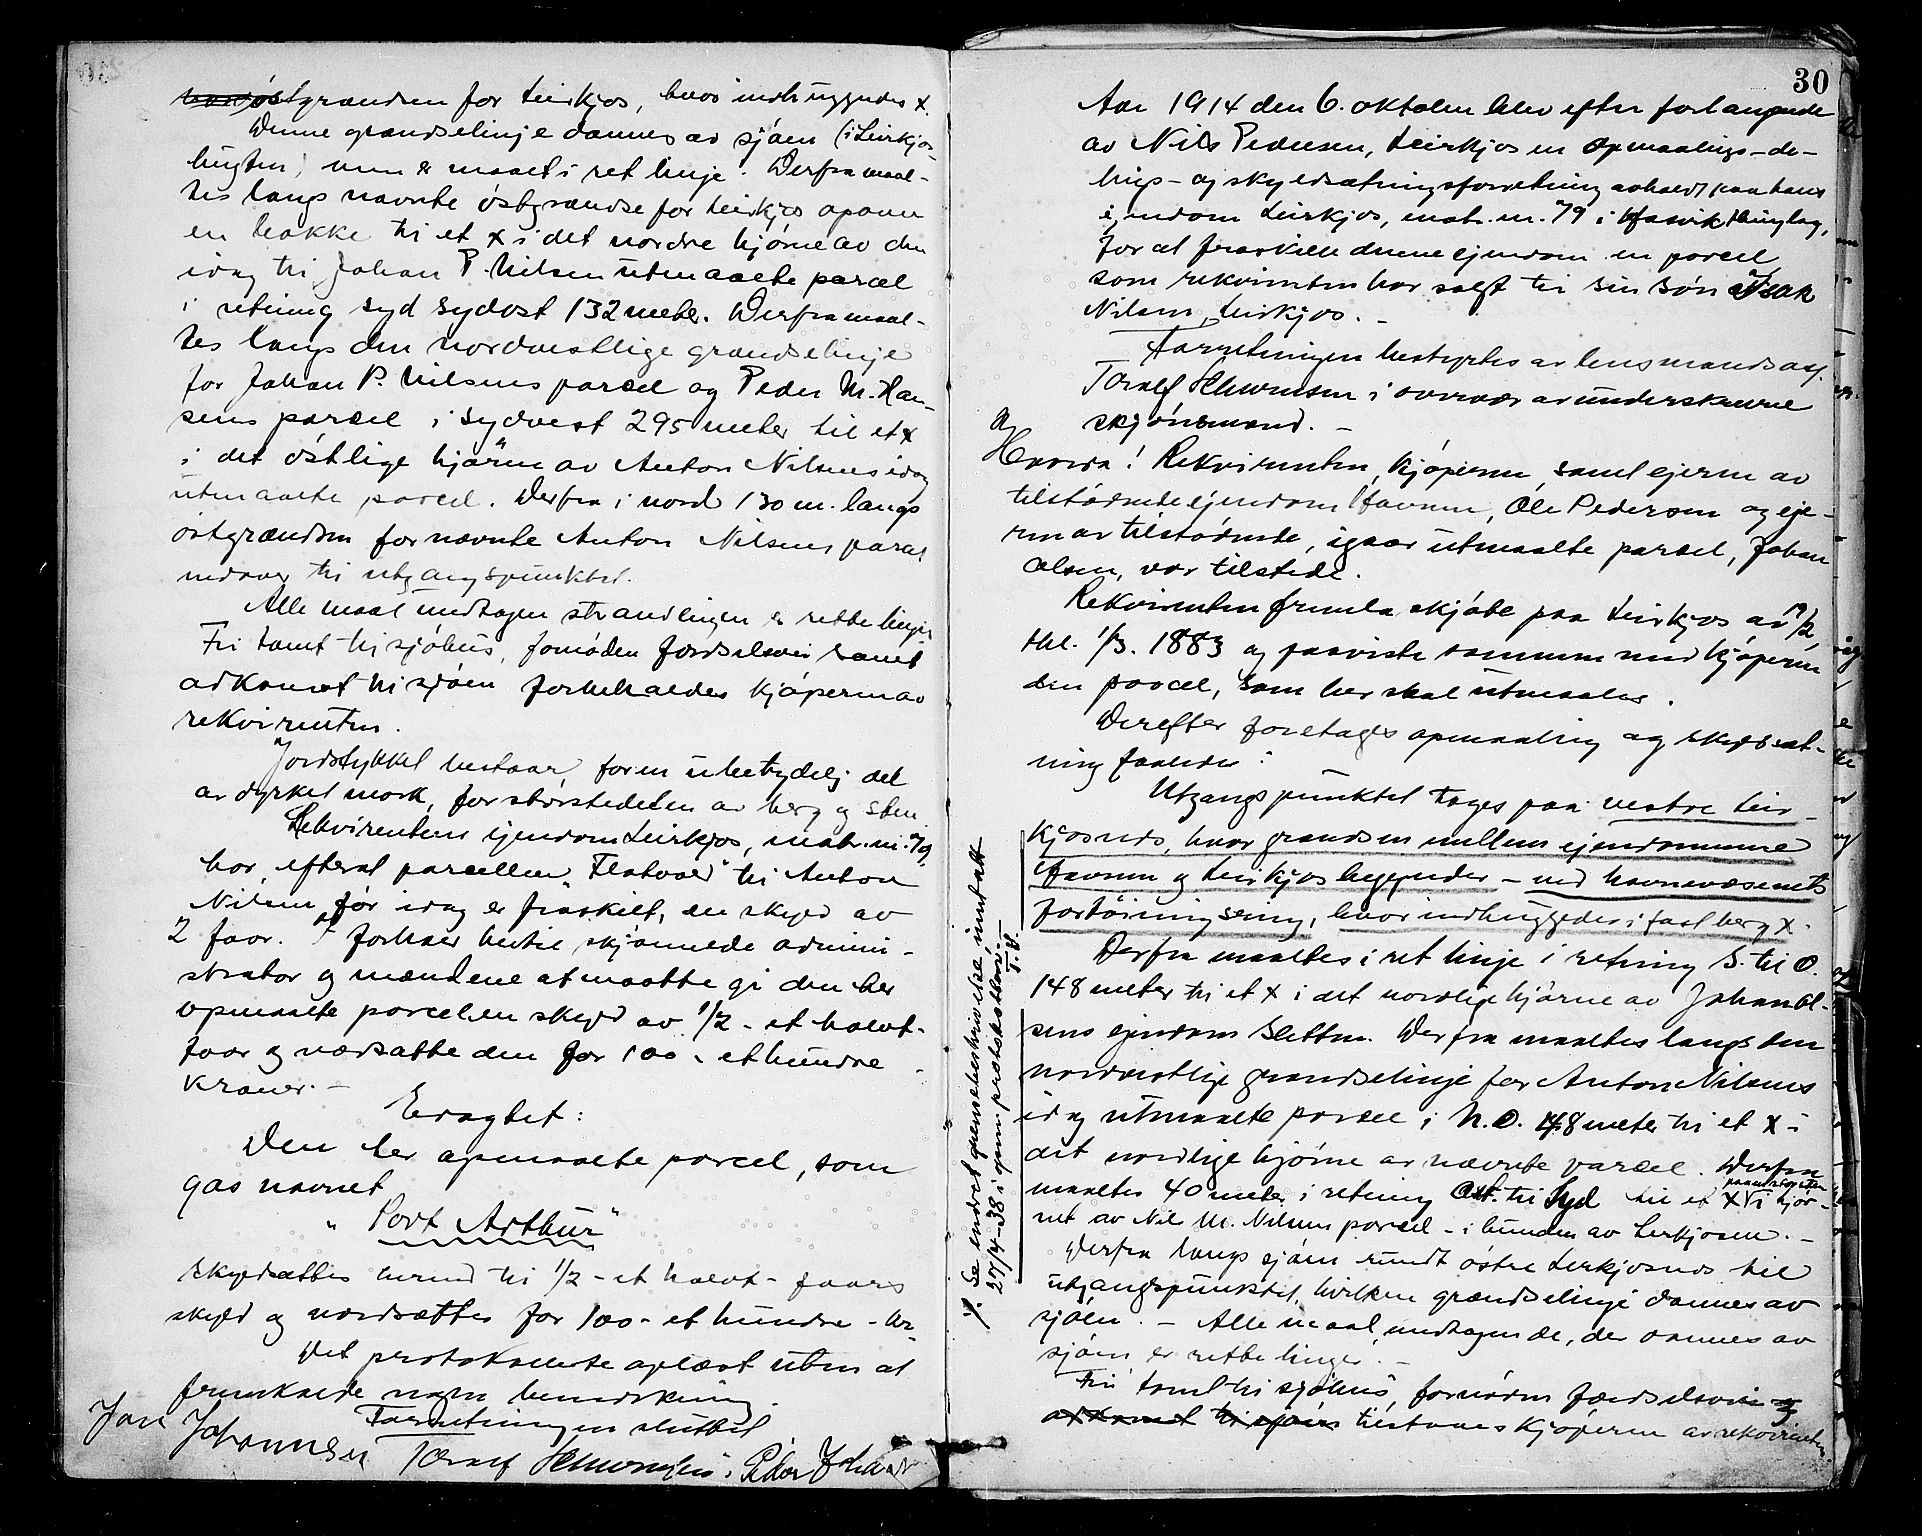 østgrændsen for Leirkjos, hvor indhuggedes x.
Denne grændselinje dannes av sjøen (i Leirkjos-
bugten) men er maalt i ret linje. Derfra maal-
tes langs nævnte østgrændse for Leirkjos opover
en bakke til et x i det nordre hjørne av den
idag til Johan P. Nilsen utmaalte parcel
i retning syd sydost 132 meter. Derfra maal-
tes langs den nordvestlige grændselinje
for Johan P. Nilsens parcel og Peder M. Han-
sens parcel i sydvest 295 meter til et x
i det østlige hjørne av Anton Nilsens idag
utmaalte parcel. Derfra i nord 130 m. langs
østgrændsen for nævnte Anton Nilsens parcel
nedover til utgangspunktet.
Alle maal undtagen strandlinjen er rette linjer
Fri tomt til sjøhus, fornøden færdselsvei samt
adkomst til sjøen forbeholdes kjøperen av
rekvirenten.
Jordstykket bestaar, for en ubetydelig del
av dyrket mark, for størstedelen av berg og sten.
Rekvirentens eiendom Leirkjos, matr. nr. 79,
har, efterat parcellen "Flatvær" til Anton
Nilsen før idag er fraskilt, en skyld av
2 faar. I forhold hertil skjønnede admini-
strator og mændene at maatte gi den her
opmaalte parcelen skyld av 1/2 - et halvt -
faar og værdsatte den for 100 - et hundre -
kroner. -
Eragtet:
Den her opmaalte parcel, som
gas navnet
"Port Arthur"
skyldsættes herved til 1/2 - et halvt - faars
skyld og værdsættes for 100 - et hundre - kr.
Det protokollerte oplæst uten at
fremkalde nogen bemerkning.
Forretningen sluttet
Jon Johannesen Toralf Peder Johan
30
Aar 1914 den 6. oktober blev efter forlangende
av Nils Pedersen, Leirkjos en opmaalings-de-
lings- og skyldsætningsforretning avholdt paa hans
ejendom Leirkjos, matr. nr. 79 i Hasvik thinglag,
for at fraskille denne ejendom en parcel
som rekvirenten har solgt til sin søn Isak
Nilsen, Leirkjos. -
Forretningen bestyrtes av lensmandsass.
Toralf i overvær av underskrevne
skjønsmænd. -
Hvorda! Rekvirenten, kjøperen, samt ejeren av
tilstødende ejendom Havnen, Ole Pedersen og eje-
ren av tilstødende, igaar utmaalte parcel, Johan
Olsen, var tilstede.
Rekvirenten fremla skjøte paa Leirkjos av 19/2
thl. 1/3. 1883 og paaviste sammen med kjøperen
den parcel, som her skal utmaales.
Derefter foretages opmaaling og skyldsæt-
ning saaledes:
Utgangspunktet tages paa vestre Leir-
kjosnes, hvor grændsen mellem ejendommene
Havnen og Leirkjos begynder - ved havnevæsenets
fortøiningsring, hvor indhuggedes i fast berg x.
Derfra maaltes i ret linje i retning S. til O.
148 meter til et x i det nordlige hjørne av Johan Ol-
sens ejendom Sletten. Derfra maaltes langs den
nordvestlige grændselinje for Anton Nilsens
idag utmaalte parcel i N.O. 48 meter til et x i
det nordlige hjørne av nævnte parcel. Derfra
maaltes 40 meter i retning Ost. til Syd til et x i hjør-
net av Nils M. Nilsens parcel - i bunden av Leirkjosen. -
Derfra langs sjøen rundt østre Leirkjosnes til
utgangspunktet, hvilken grændselinje dannes av
sjøen. - Alle maal, undtagen de, der dannes av
sjøen er rette linjer. -
Fri tomt til sjøhus, fornøden færdselsvei og
adkomst til sjøen tilstaaes kjøperen av rekvirenten.
./. Se endret grensebeskrivelse inntatt
27/4-38 i opm. protokollen. T.V.